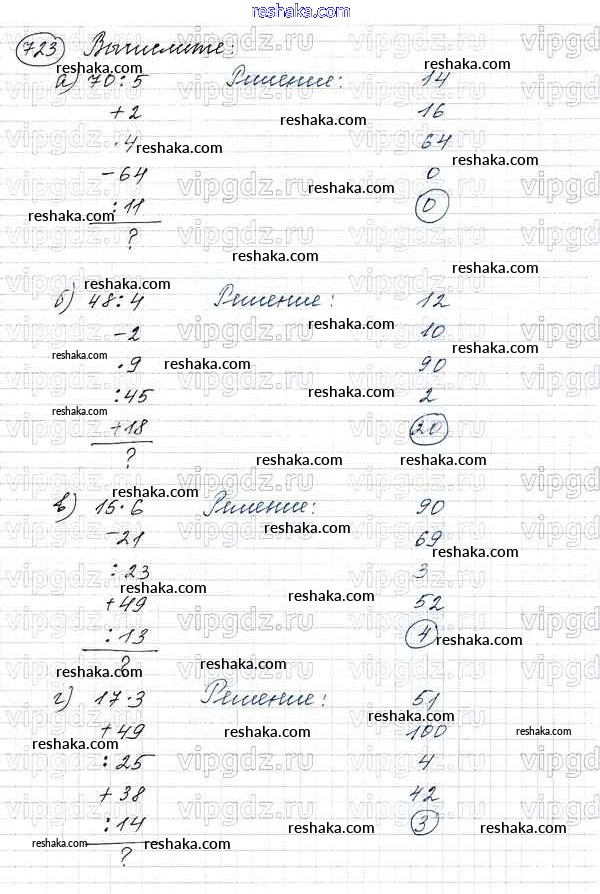 reshaka.com
723 Вычислите:
а) 70:5 Решение: 14
+2 16
·4 64
-64 0
:11 0
?
б) 48:4 Решение: 12
-2 10
·9 90
:45 2
+18 20
?
в) 15·6 Решение: 90
-21 69
:23 3
+49 52
:13 4
?
г) 17·3 Решение: 51
+49 100
:25 4
+38 42
:14 3
?